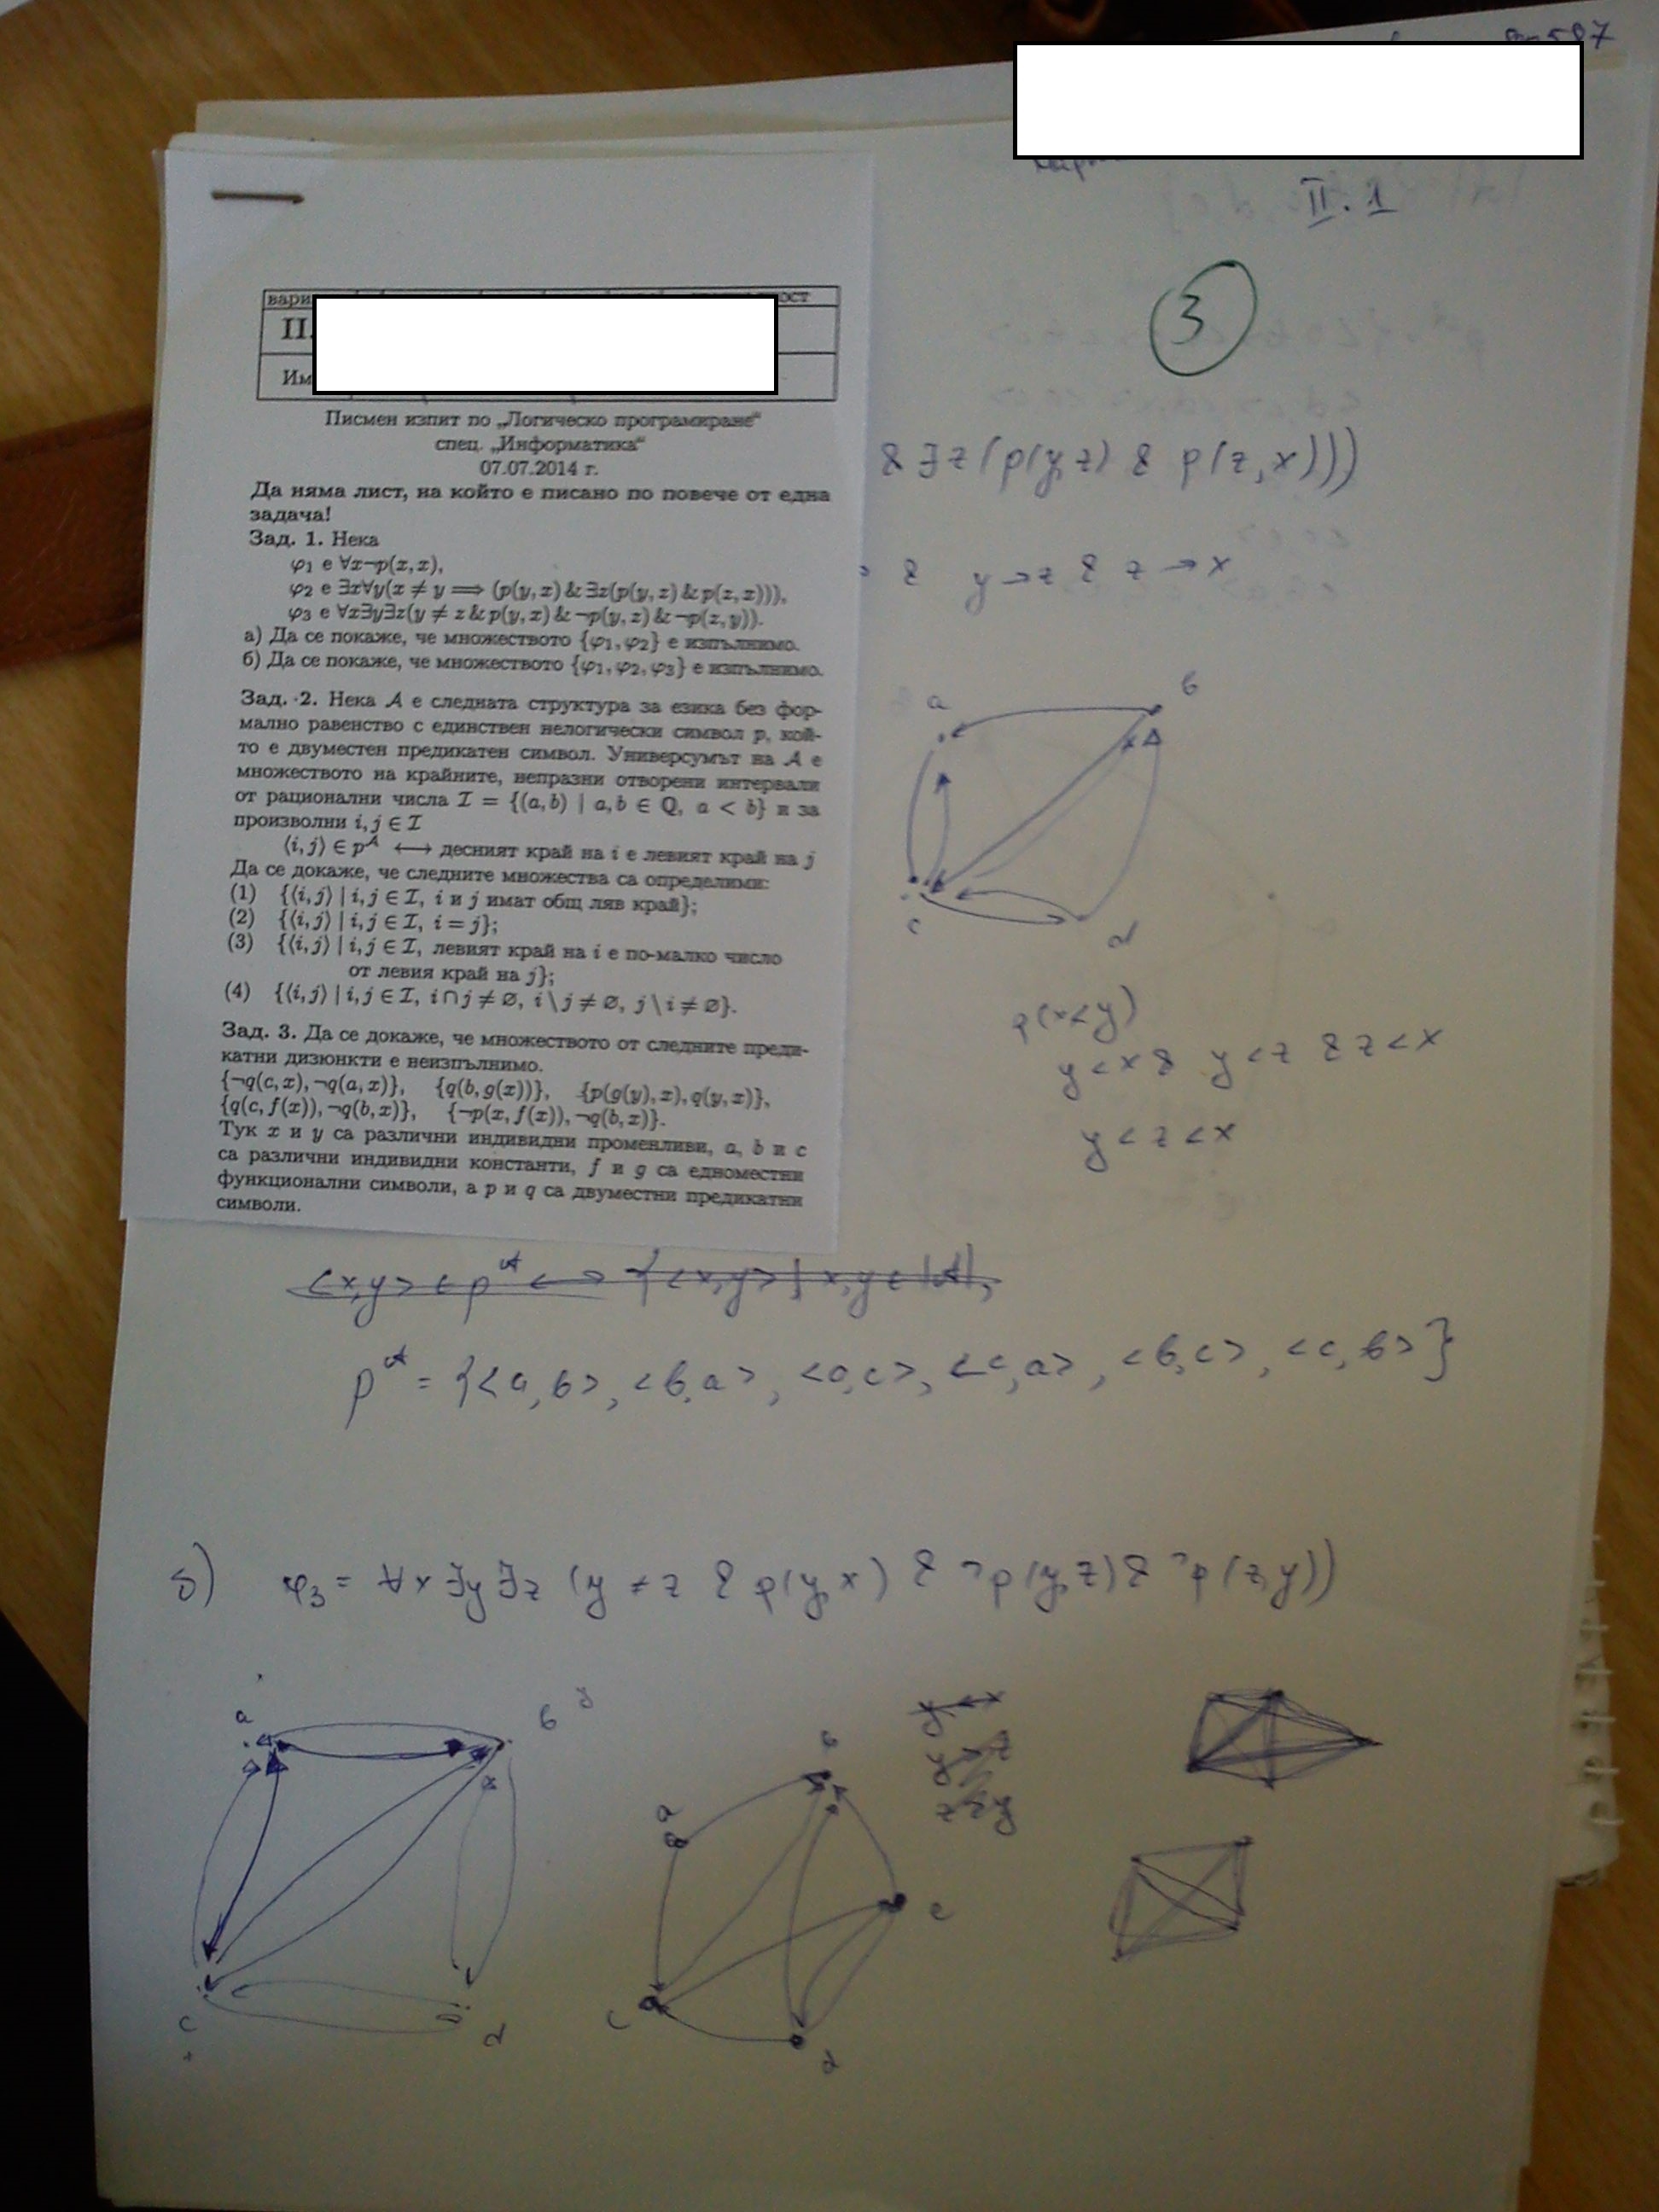 II. 1
3
вари
II.
Им
Писмен изпит по „Логическо програмиране“
спец. „Информатика“
07.07.2014 г.
Да няма лист, на който е писано по повече от една
задача!
Зад. 1. Нека
φ₁ е ∀x¬p(x,x),
φ₂ е ∃x∀y(x ≠ y ⟹ (p(y,x) & ∃z(p(y,z) & p(z,x))),
φ₃ е ∀x∃y∃z(y ≠ z & p(y,x) & ¬p(y,z) & ¬p(z,y)).
а) Да се покаже, че множеството {φ₁, φ₂} е изпълнимо.
б) Да се покаже, че множеството {φ₁, φ₂, φ₃} е изпълнимо.
Зад. 2. Нека 𝒜 е следната структура за езика без фор-
мално равенство с единствен нелогически символ p, кой-
то е двуместен предикатен символ. Универсумът на 𝒜 е
множеството на крайните, непразни отворени интервали
от рационални числа ℐ = {(a,b) | a,b ∈ Q, a < b} и за
произволни i,j ∈ ℐ
⟨i,j⟩ ∈ p^𝒜 ⟷ десният край на i е левият край на j
Да се докаже, че следните множества са определими:
(1) {⟨i,j⟩ | i,j ∈ ℐ, i и j имат общ ляв край};
(2) {⟨i,j⟩ | i,j ∈ ℐ, i = j};
(3) {⟨i,j⟩ | i,j ∈ ℐ, левият край на i е по-малко число
от левия край на j};
(4) {⟨i,j⟩ | i,j ∈ ℐ, i∩j ≠ ∅, i\j ≠ ∅, j\i ≠ ∅}.
Зад. 3. Да се докаже, че множеството от следните преди-
катни дизюнкти е неизпълнимо.
{¬q(c,x),¬q(a,x)}, {q(b,g(x))}, {p(g(y),x),q(y,x)},
{q(c,f(x)),¬q(b,x)}, {¬p(x,f(x)),¬q(b,x)}.
Тук x и y са различни индивидни променливи, a, b и c
са различни индивидни константи, f и g са едноместни
функционални символи, а p и q са двуместни предикатни
символи.
& ∃z(p(y,z) & p(z,x)))
& y→z & z→x
a b
c d
p(x<y)
y<x & y<z & z<x
y<z<x
<x,y> ∈ p^𝒜 ↔ {<x,y> | x,y ∈ |𝒜|,
p^𝒜 = {<a,b>, <b,a>, <a,c>, <c,a>, <b,c>, <c,b>}
б) φ₃ = ∀x∃y∃z (y ≠ z & p(y,x) & ¬p(y,z) & ¬p(z,y))
a b
c d
a b e
c d